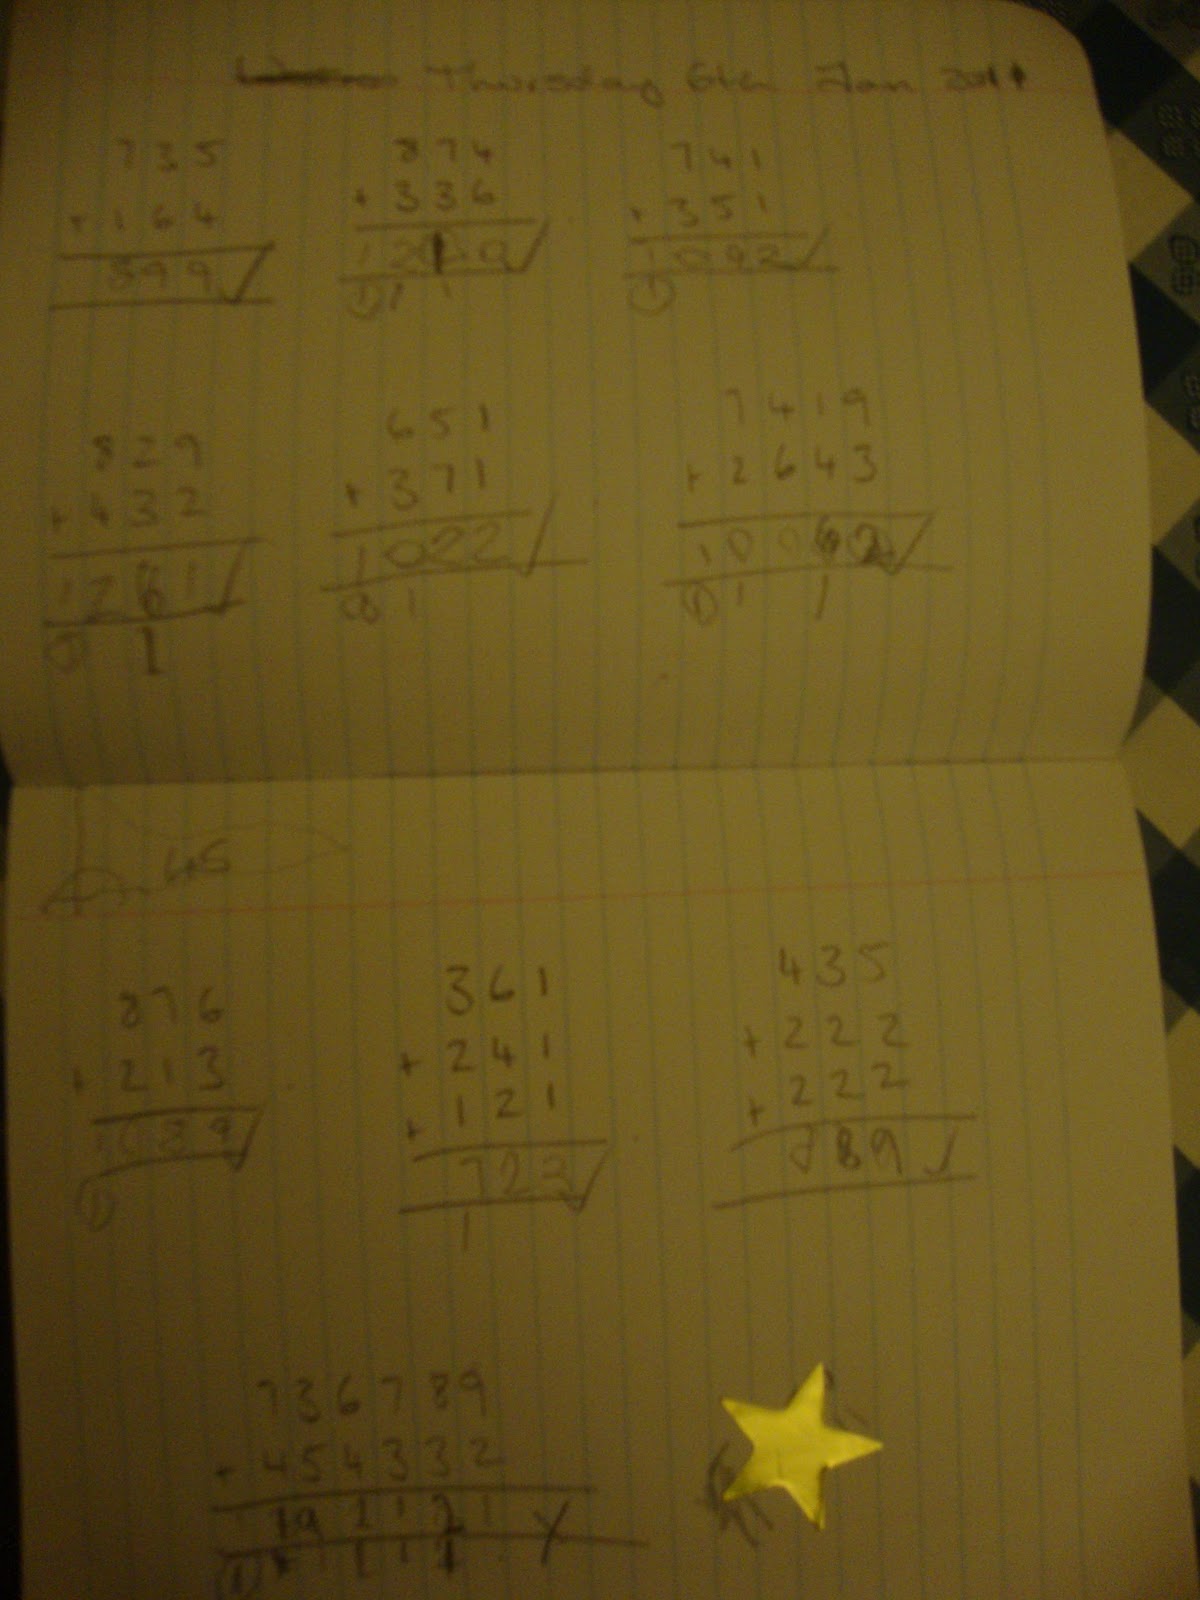 Thursday 6th Jan 2011
735 874 741
+ 164 + 336 + 351
899 ✓ 1210 ✓ 1092 ✓
① 1 1 ①
829 651 7419
+ 432 + 371 + 2643
1261 ✓ 1022 ✓ 10062 ✓
① 1 ① 1 ① 1 1
45
876 361 435
+ 213 + 241 + 222
+ 121 + 222
1089 ✓ 723 ✓ 889 ✓
① 1
736789
+ 454332